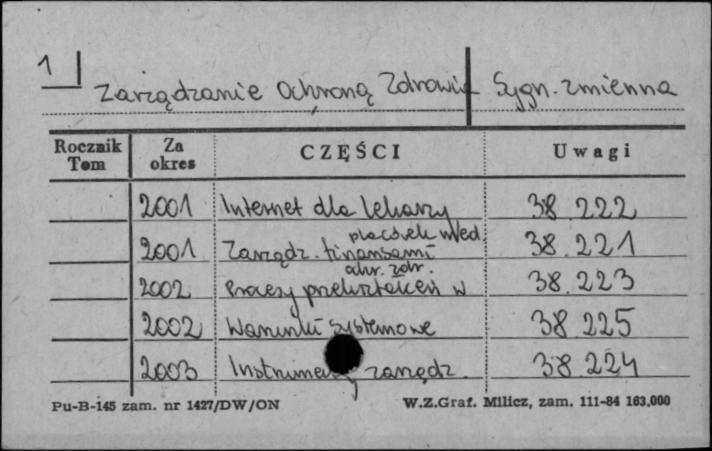 1
Zarządzanie Ochroną Zdrowia Sygn. zmienna
Rocznik Tom Za okres CZĘŚCI Uwagi
2001 Internet dla lekarzy 38 222
placówek med.
2001 Zarządz. finansami 38 221
ochr. zdr.
2002 Procesy przekształceń w 38 223
2002 Warunki systemowe 38 225
2003 Instrumenty zarządz. 38 224
Pu-B-145 zam. nr 1427/DW/ON W.Z.Graf. Milicz, zam. 111-84 163.000